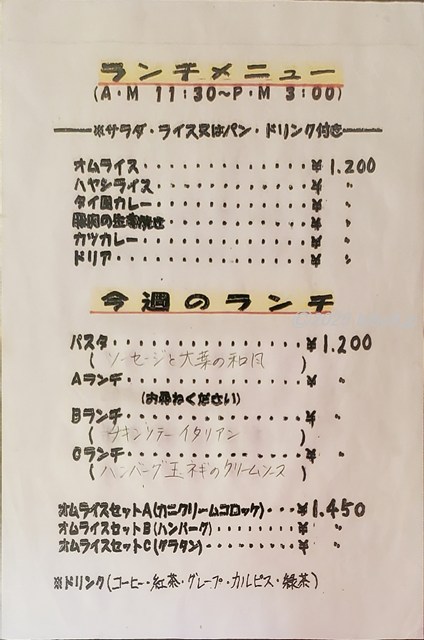 ランチメニュー
(A・M 11:30〜P・M 3:00)
※サラダ・ライス又はパン・ドリンク付き
オムライス・・・・・・・・・・・・・・¥1.200
ハヤシライス・・・・・・・・・・・・・¥ 〃
タイ風カレー・・・・・・・・・・・・・¥ 〃
豚肉の生姜焼き・・・・・・・・・・・・¥ 〃
カツカレー・・・・・・・・・・・・・・¥ 〃
ドリア・・・・・・・・・・・・・・・・¥ 〃
今週のランチ
パスタ・・・・・・・・・・・・・・・・¥1.200
(ソーセージと大葉の和風)
Aランチ・・・・・・・・・・・・・・・¥ 〃
(お尋ねください)
Bランチ・・・・・・・・・・・・・・・¥ 〃
(チキンソテーイタリアン)
Cランチ・・・・・・・・・・・・・・・¥ 〃
(ハンバーグ玉ネギのクリームソース)
オムライスセットA(カニクリームコロッケ)・・・¥1.450
オムライスセットB(ハンバーグ)・・・・・・・¥ 〃
オムライスセットC(グラタン)・・・・・・・・¥ 〃
※ドリンク(コーヒー・紅茶・グレープ・カルピス・緑茶)